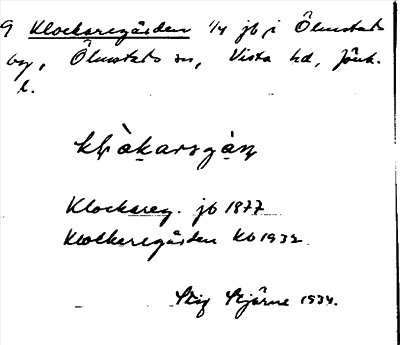 9 Klockaregården 1/4 jb, i Ölmstads
by, Ölmstads sn, Vista hd, Jönk.
l.
Klockareg. jb 1877
Klockaregården Kb 1932
Stig Stjärne 1934.